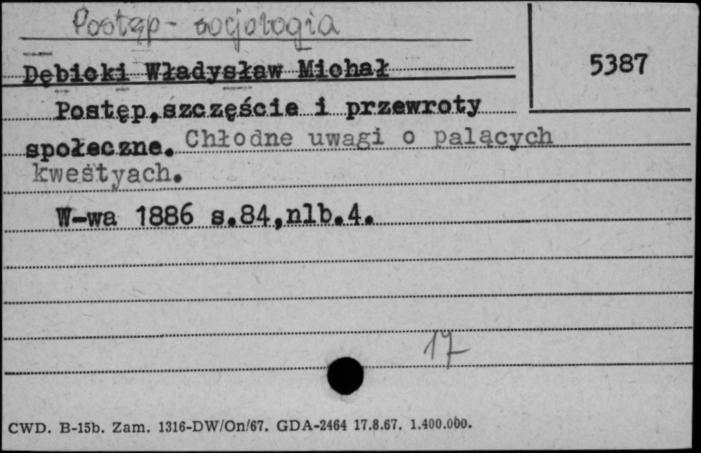 Postęp - socjologia
5387
Dębicki Władysław Michał
Postęp,szczęście i przewroty
społeczne. Chłodne uwagi o palących
kwestyach.
W-wa 1886 s.84,nlb.4.
17
CWD. B-15b. Zam. 1316-DW/On/67. GDA-2464 17.8.67. 1.400.000.